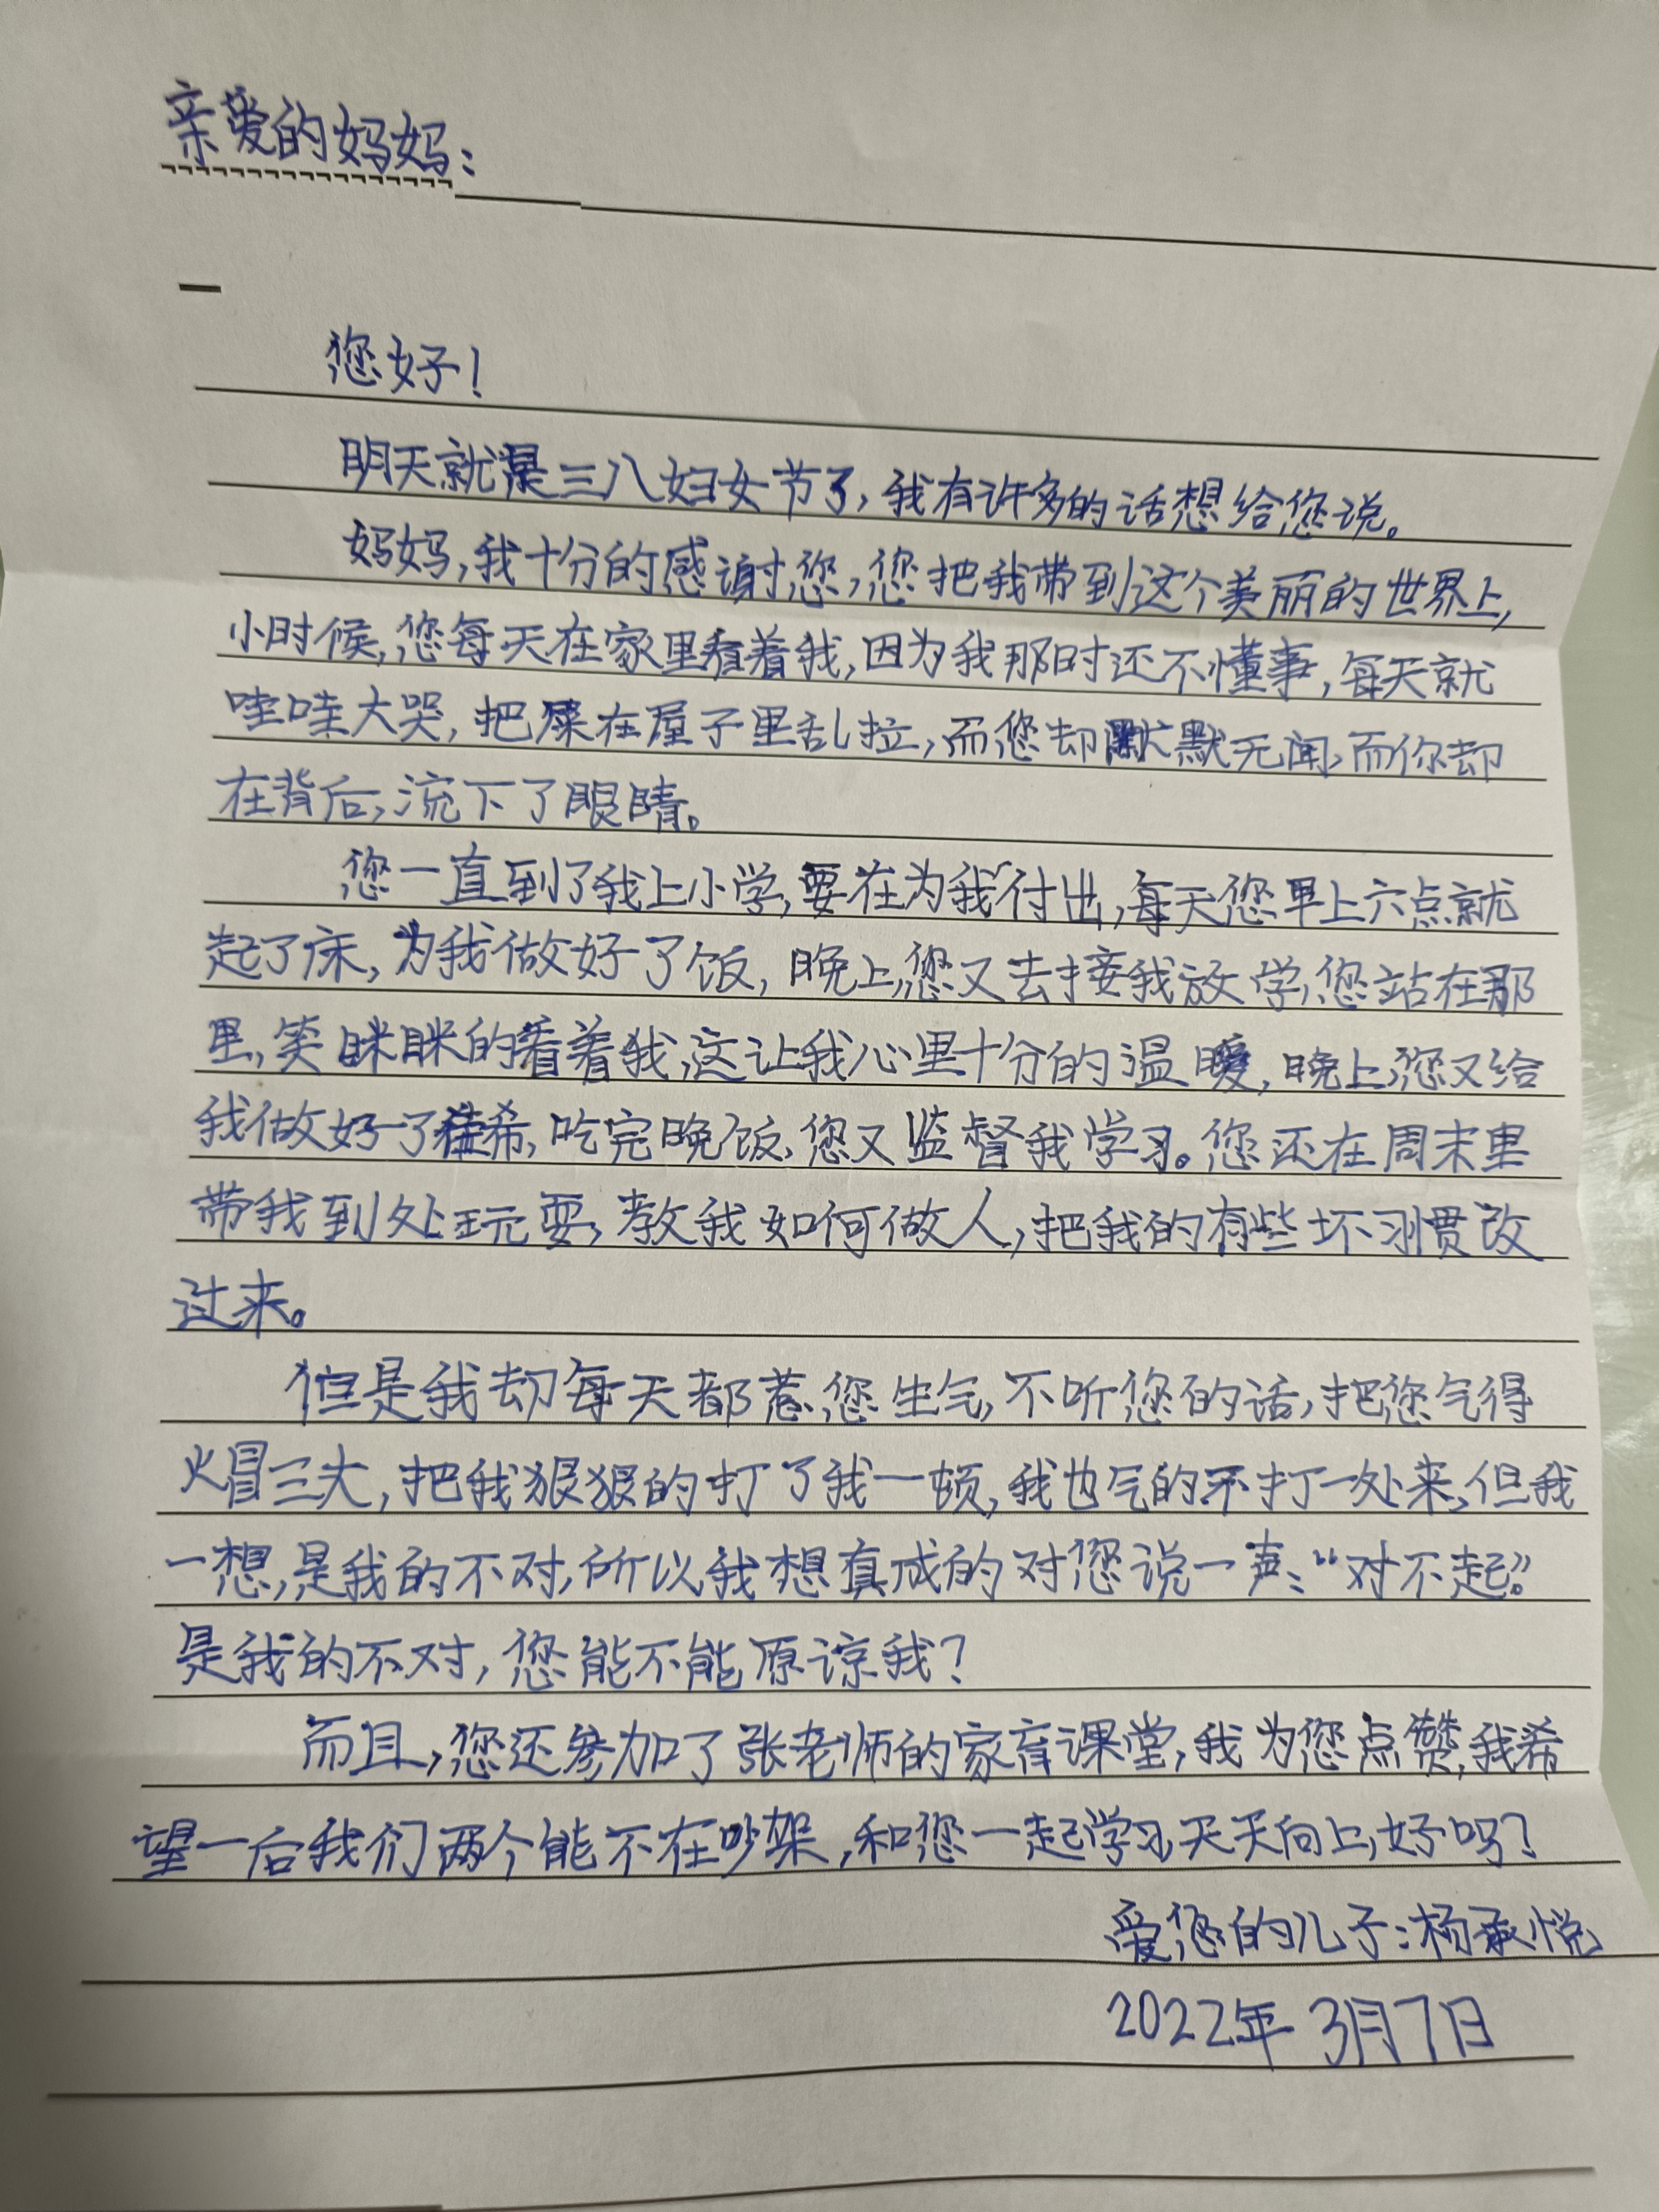 亲爱的妈妈：
您好！
明天就是三八妇女节了，我有许多的话想给您说。
妈妈，我十分的感谢您，您把我带到这个美丽的世界上，
小时候，您每天在家里看着我，因为我那时还不懂事，每天就
哇哇大哭，把屎在屋子里乱拉，而您却默默无闻，而你却
在背后，流下了眼睛。
您一直到了我上小学，要在为我付出，每天您早上六点就
起了床，为我做好了饭，晚上，您又去接我放学，您站在那
里，笑眯眯的看着我，这让我心里十分的温暖，晚上，您又给
我做好了稀，吃完晚饭，您又监督我学习。您还在周末里
带我到处玩耍，教我如何做人，把我的有些坏习惯改
过来。
但是我却每天都惹您生气，不听您的话，把您气得
火冒三大，把我狠狠的打了我一顿，我也气的不打一处来，但我
一想，是我的不对，所以我想真成的对您说一声：“对不起。”
是我的不对，您能不能原谅我？
而且，您还参加了张老师的家育课堂，我为您点赞，我希
望一后我们两个能不在吵架，和您一起学习，天天向上，好吗？
爱您的儿子：杨承悦
2022年3月7日